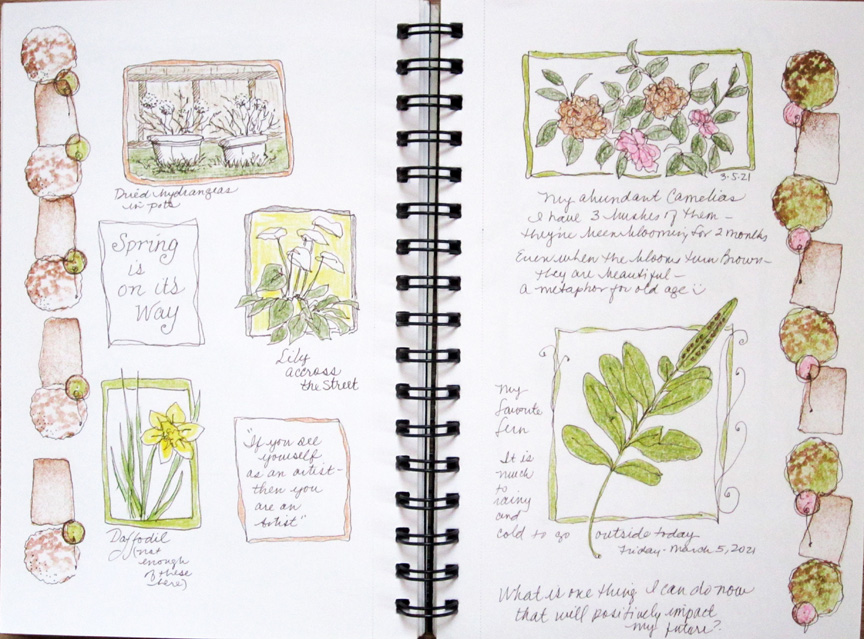 Dried hydrangeas
in pots
Spring
is
on it's
Way
Lily
accross
the Street
Daffodil
(not
enough
of these
here)
"If you see
yourself
as an artist -
then you
are an
Artist"
3.5.21
My abundant Camelias
I have 3 bushes of them -
they've been blooming for 2 months
Even when the blooms turn Brown -
they are beautiful -
a metaphor for old age
My
favorite
fern
It is
much
to
rainy
and
cold to go outside today
Friday - March 5, 2021
What is one thing I can do now
that will positively impact
my future?